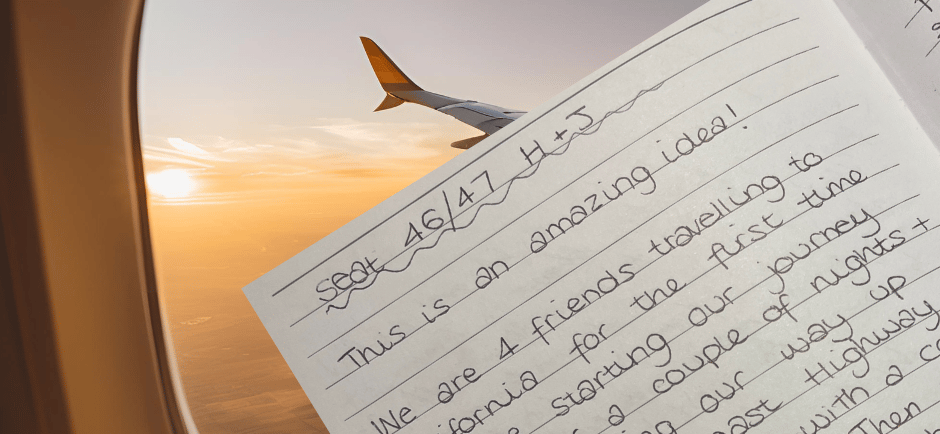 seat 46/47 H + J
This is an amazing idea!
We are 4 friends travelling to
ifornia for the first time
starting our journey
a couple of nights +
ng our way up
ast Highway
with a c
Then